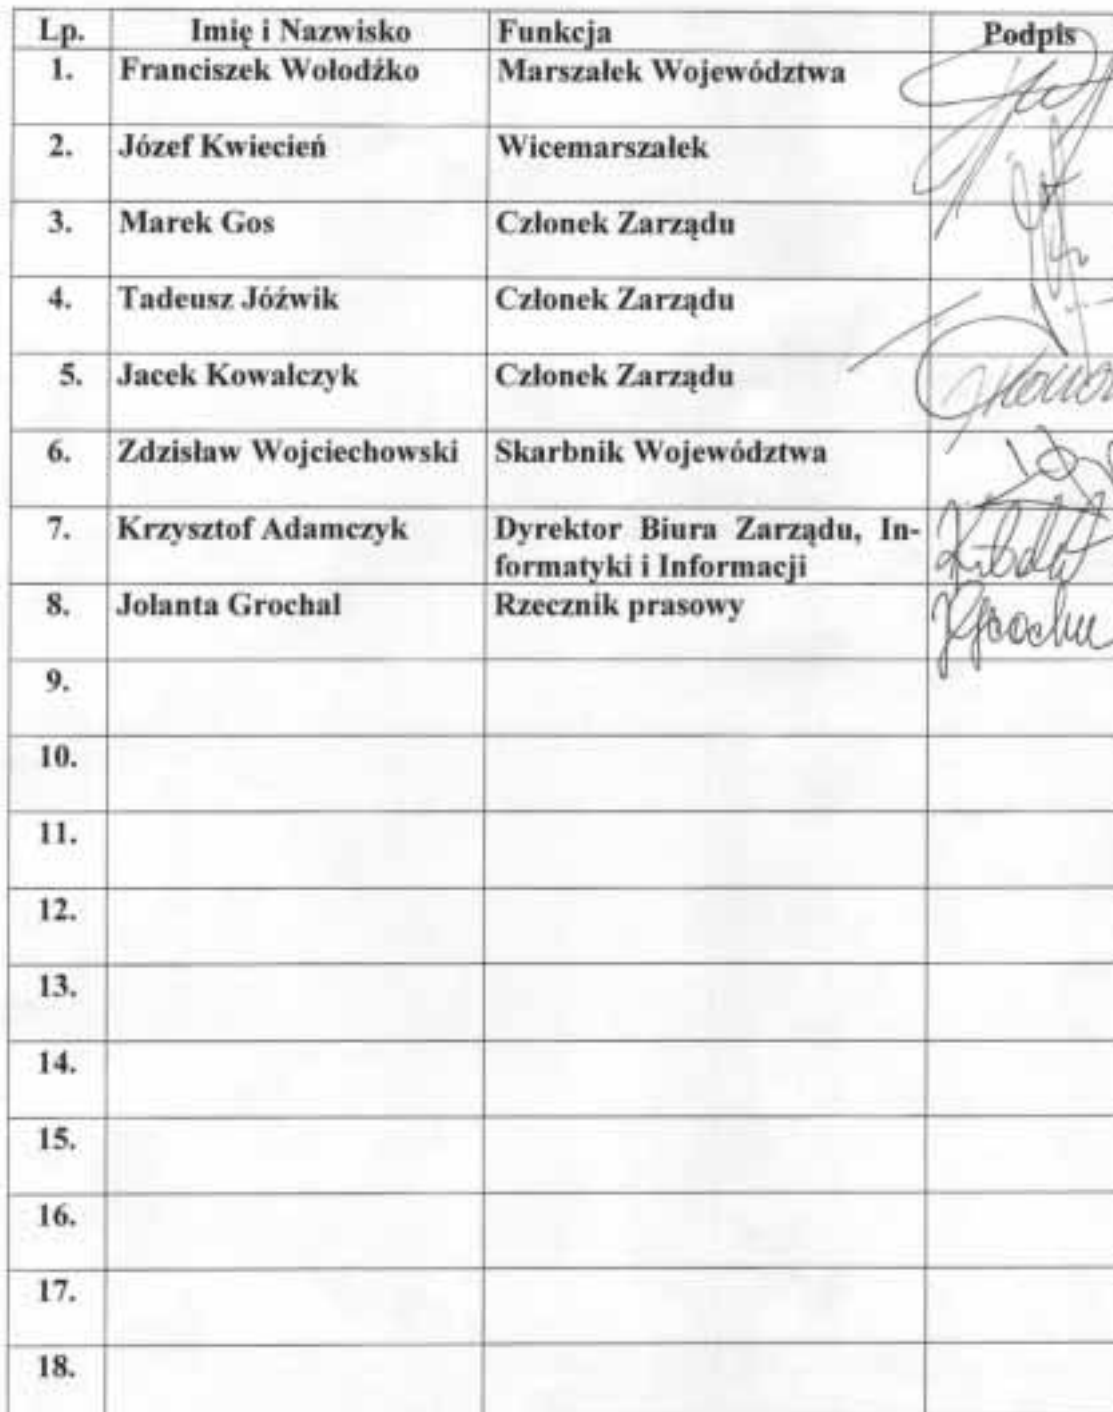 Lp. Imię i Nazwisko Funkcja Podpis
1. Franciszek Wołodźko Marszałek Województwa
2. Józef Kwiecień Wicemarszałek
3. Marek Gos Członek Zarządu
4. Tadeusz Jóźwik Członek Zarządu
5. Jacek Kowalczyk Członek Zarządu
6. Zdzisław Wojciechowski Skarbnik Województwa
7. Krzysztof Adamczyk Dyrektor Biura Zarządu, In-
formatyki i Informacji
8. Jolanta Grochal Rzecznik prasowy
9.
10.
11.
12.
13.
14.
15.
16.
17.
18.